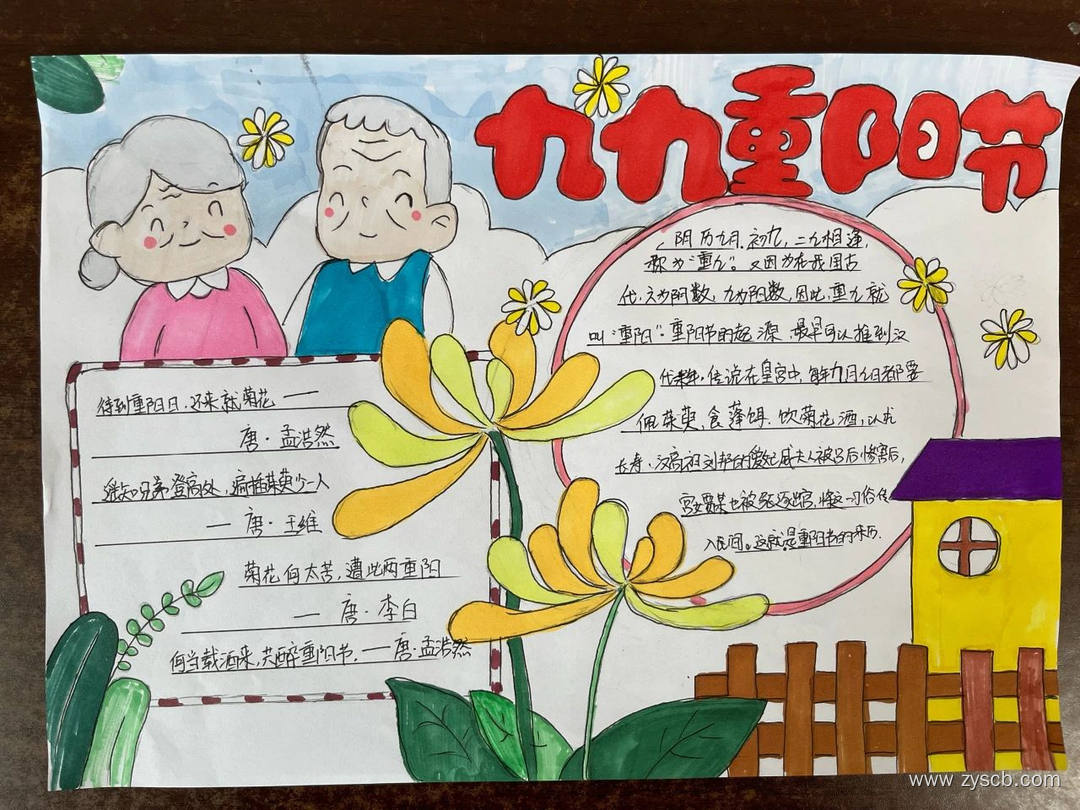 九九重阳节
待到重阳日,还来就菊花 ——
唐·孟浩然
遥知兄弟登高处,遍插茱萸少一人
— 唐·王维
菊花何太苦,遭此两重阳
— 唐·李白
何当载酒来,共醉重阳节.—唐·孟浩然
阴历九月初九,二九相逢,
称为“重九”。又因为在我国古
代,六为阴数,九为阳数,因此,重九就
叫“重阳”.重阳节的起源,最早可以推到汉
代初年,传说在皇宫中,每年九月九日都要
佩茱萸,食蓬饵,饮菊花酒,以求
长寿.汉高祖刘邦的爱妃戚夫人被吕后惨害后,
宫女贾某也被逐出宫,将这一习俗传
入民间。这就是重阳节的来历.
www.zyscb.com